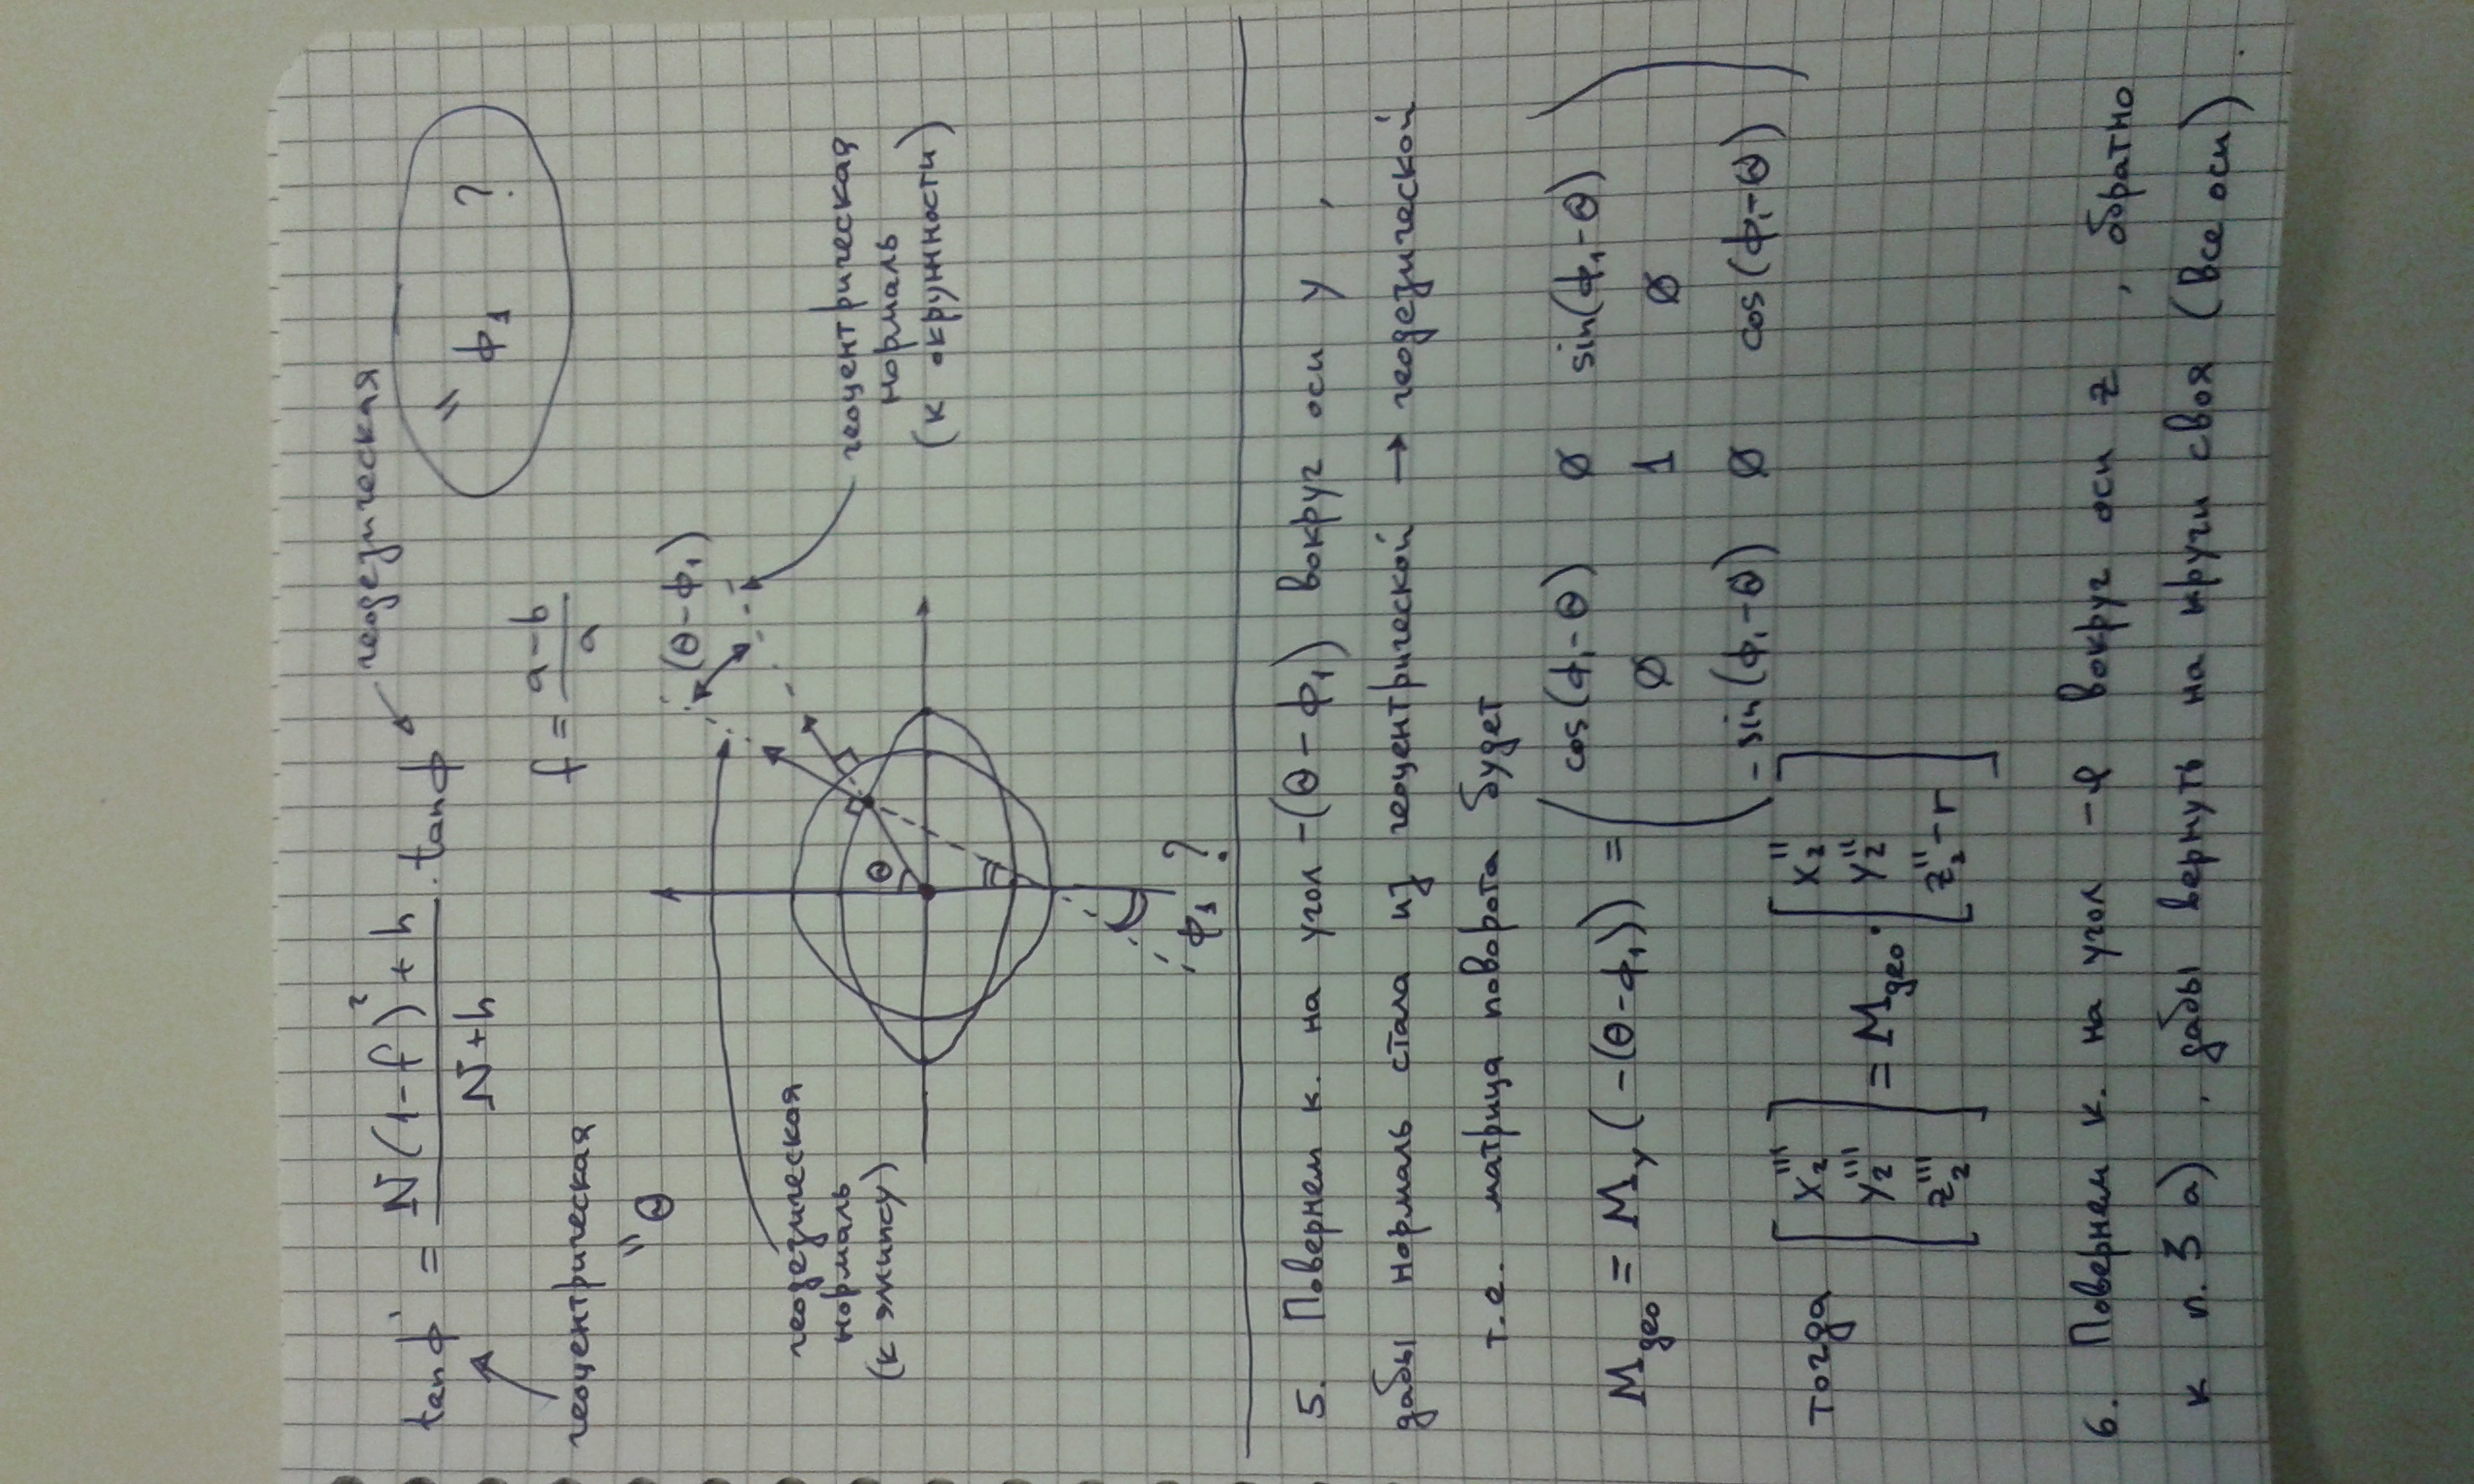 геодезическая
tan ϕ' = (N(1-f)² + h)/(N+h) · tan ϕ
" ϕ₁ ?
f = (a-b)/a
геоцентрическая
" Θ
(θ-ϕ₁)
геодезическая
нормаль
(к эллипсу)
Θ
ϕ₁ ?
геоцентрическая
нормаль
(к окружности)
5. Повернем к. на угол -(Θ-ϕ₁) вокруг оси y,
дабы нормаль стала из геоцентрической → геодезической
т.е. матрица поворота будет
M гео = M y (-(Θ-ϕ₁)) =
cos(ϕ₁-Θ) 0 sin(ϕ₁-Θ)
0 1 0
-sin(ϕ₁-Θ) 0 cos(ϕ₁-Θ)
тогда [x₂''' y₂''' z₂'''] = M гео · [x₂'' y₂'' z₂''-r]
6. Повернем к. на угол -l вокруг оси z, обратно
к п. 3 а), дабы вернуть на круги своя (все оси).